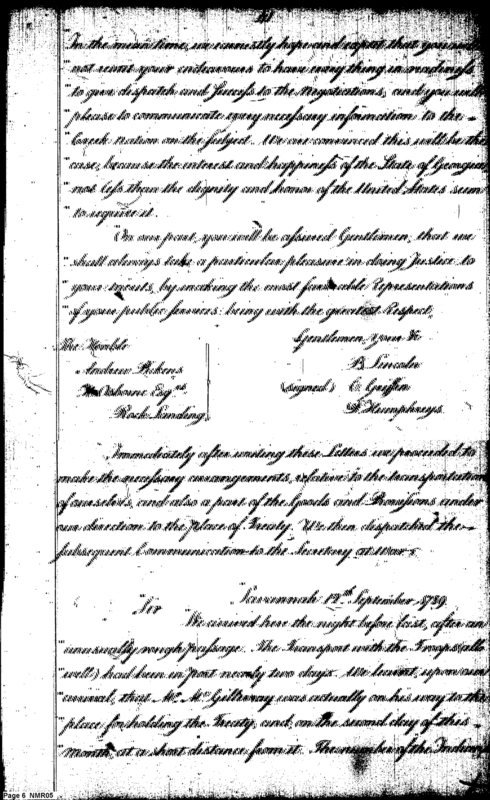 "In the mean time, we earnestly hope and expect that you will
"not remit your endeavours to have every thing in readiness
"to give dispatch and success to the Negotiations, and you will
"please to communicate every necessary information to the
"Creek Nation on the subject. We are convinced this will be the
"case, because the interest and happiness of the State of Georgia
"not less than the dignity and honor of the United States seem
"to require it.
"On our part, you will be assured Gentlemen, that we
"shall always take a particular pleasure in doing Justice to
"your merits, by making the most favorable Representations
"of your public services: being with the greatest Respect,
Gentlemen, your &c
The Honble
B. Lincoln
"Andrew Pickens
(signed) C. Griffin
Osborne Esqrs
D. Humphreys.
Rock Landing.
Immediately after writing these Letters we proceeded to
make the necessary arrangements, relative to the transportation
of ourselves, and also a part of the Goods and Provisions under
our direction to the place of Treaty. We then dispatched the
subsequent Communication to the Secretary at War.
"Savannah 12th September 1789.
"Sir
We arrived here the night before last, after an
"unusually rough passage. The Transport with the Troops (all
"well) had been in port nearly two days. We learnt, upon our
"arrival, that Mr. McGillivray was actually on his way to the
"place for holding the Treaty, and, on the second day of this
"month, at a short distance from it. The number of the Indians
Page 6 NMR05